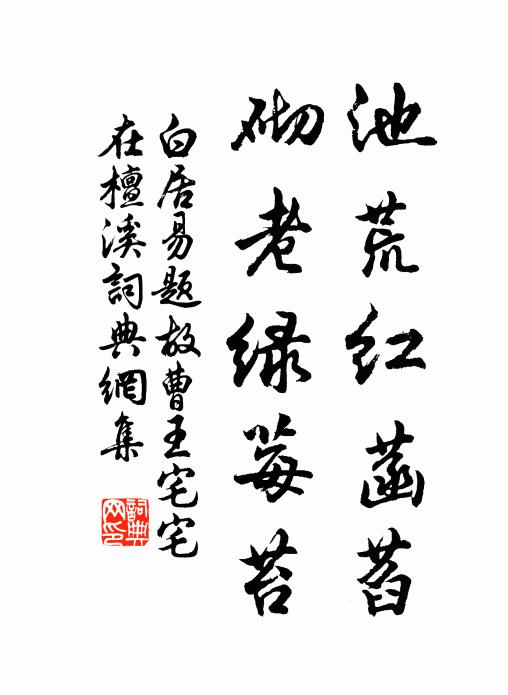 池荒红菡萏
砌老绿莓苔
白居易题故曹王宅宅
在檀溪詞典網集
詞典
网印